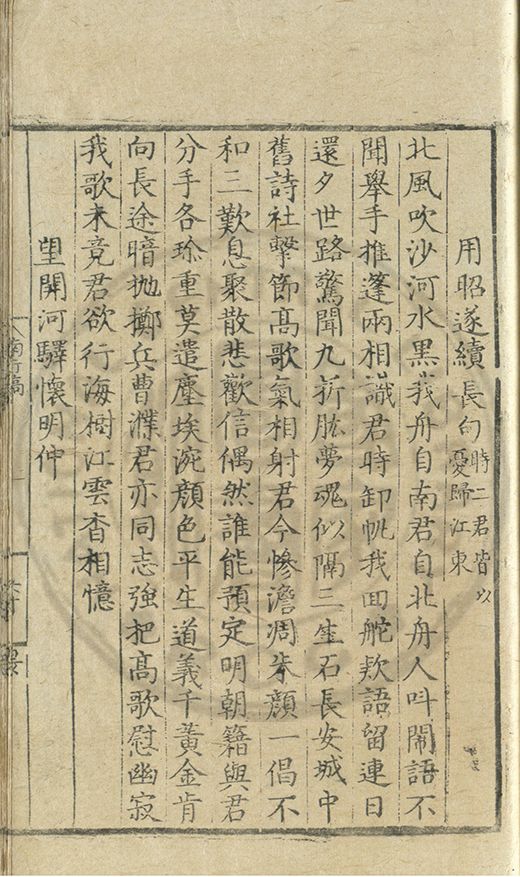 用昭遂續長句時二君皆以憂歸江東
北風吹沙河水黑我舟自南君自北舟人呌閙語不
聞舉手推篷兩相識君時卸帆我囬舵欵語留連日
還夕世路驚聞九折肱夢魂似隔三生石長安城中
舊詩社擊節髙歌氣相射君今慘澹凋朱顔一倡不
和三歎息聚散悲歡信偶然誰能預定明朝籍與君
分手各珎重莫遣塵埃涴顔色平生道義千黃金肯
向長途暗抛擲兵曹濮君亦同志強把髙歌慰幽寂
我歌未竟君欲行海樹江雲杳相憶
望開河驛懷明仲
南行稿